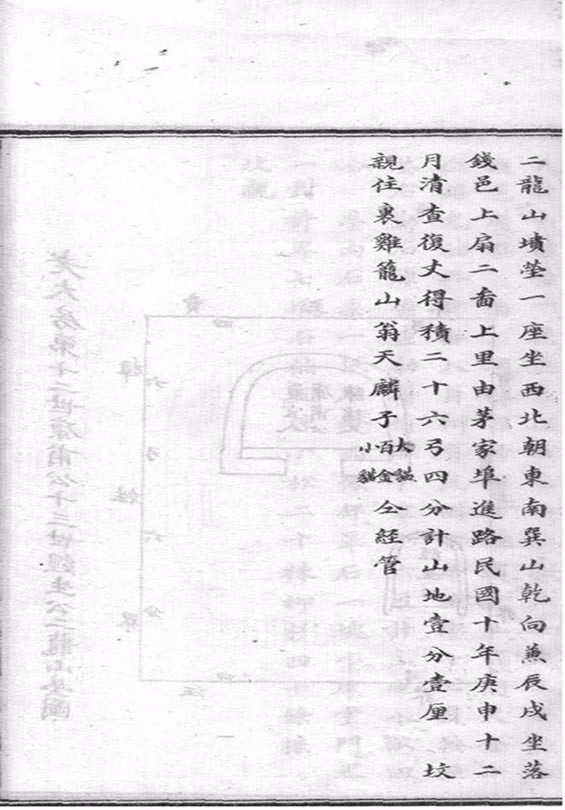 二龍山墳塋一座坐西北朝東南巽山乾向兼辰戌坐落
錢邑上扇二啚上里由茅家埠進路民國十年庚申十二
月清查復丈得積二十六弓四分計山地壹分壹厘 坟
親住裏雞籠山翁天麟子大貓百金小貓仝經管